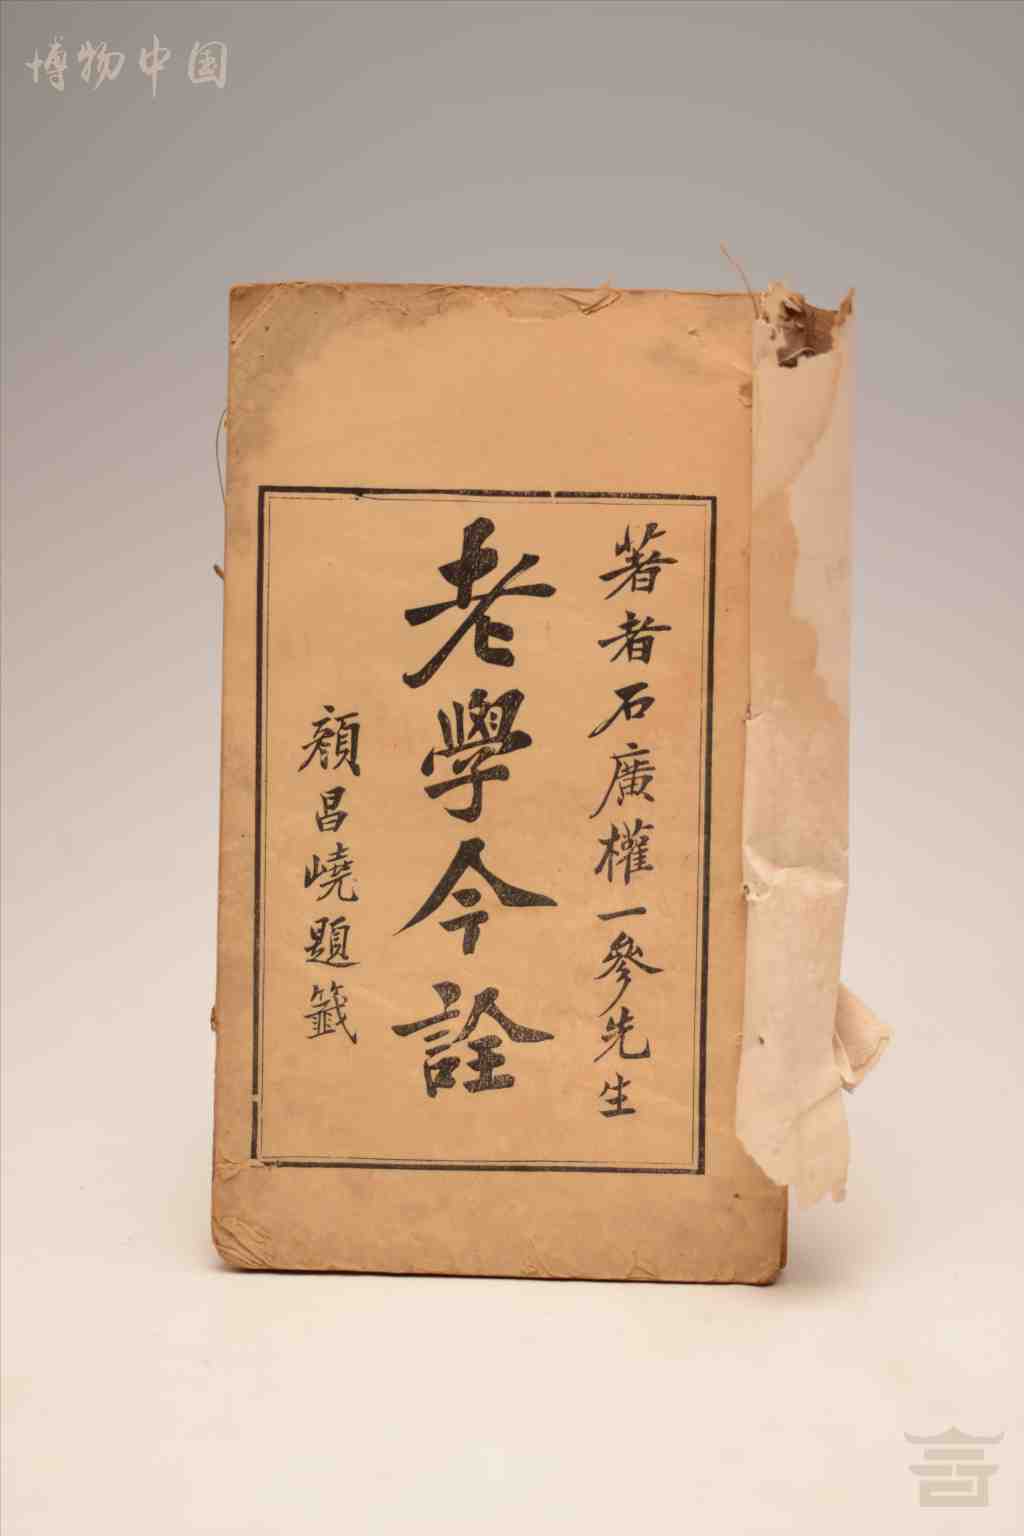 博物中国
著者石廣權一參先生
老學今詮
顏昌嶢題籤